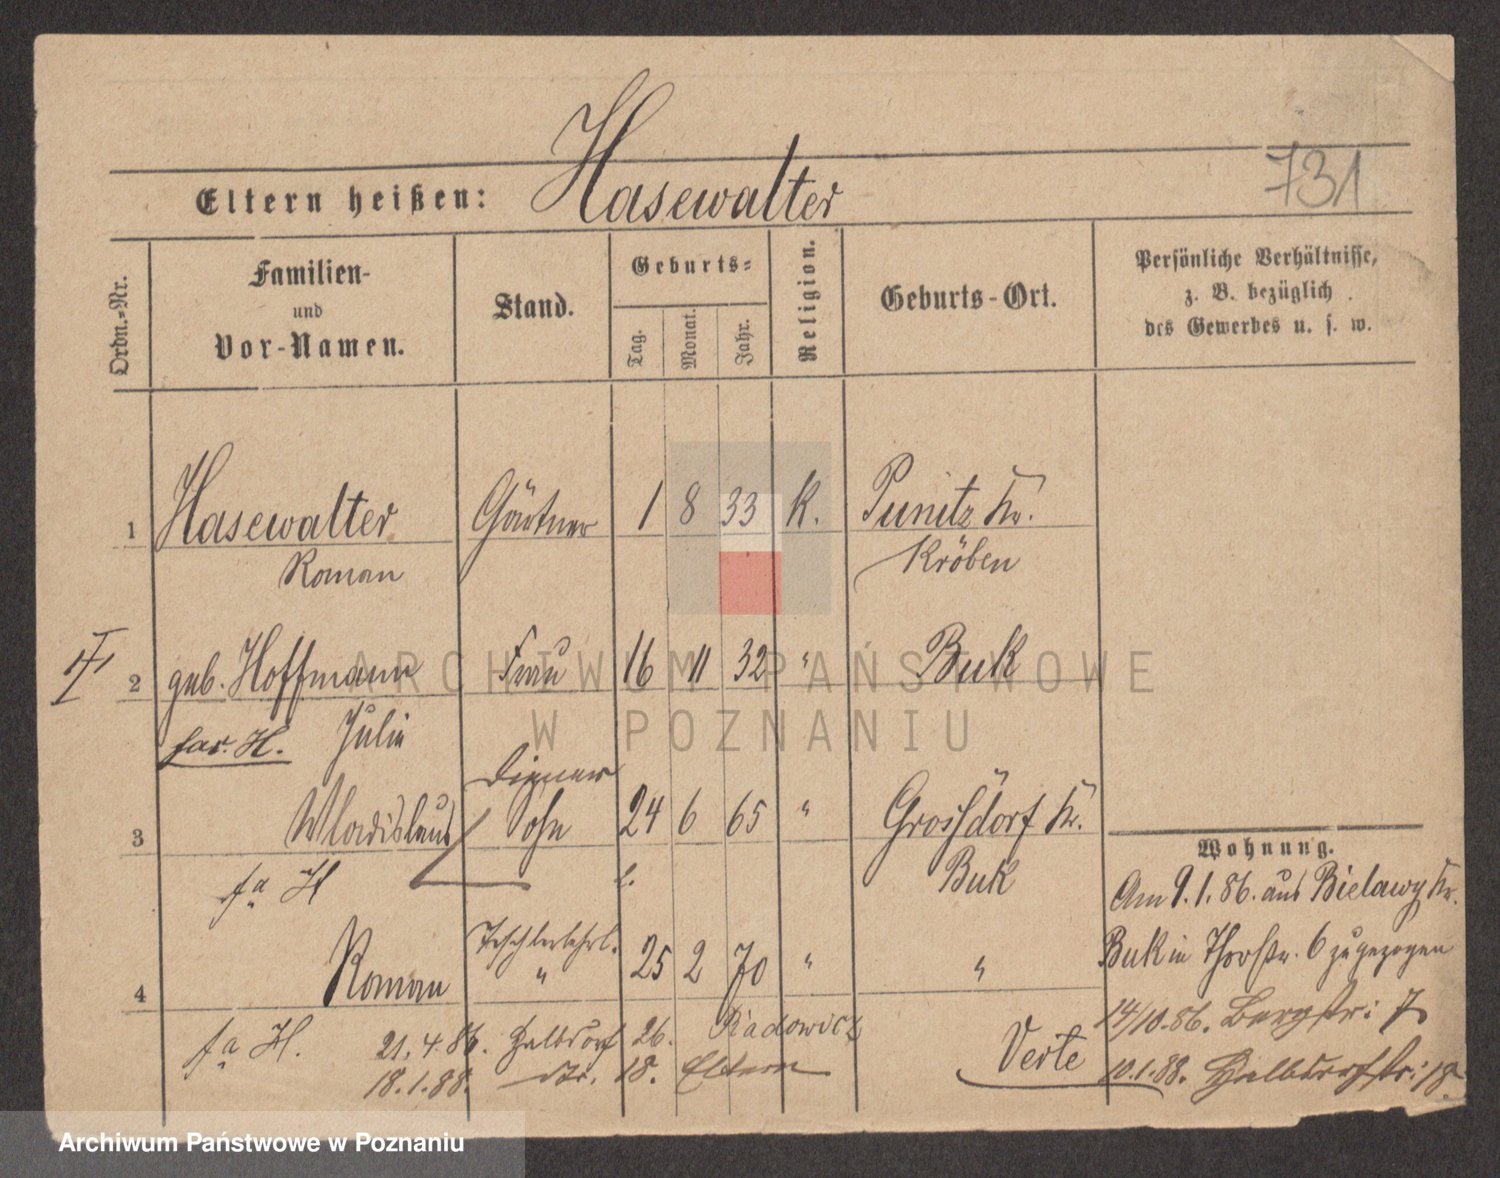 731
Eltern heißen: Hasewalter
Ordn.-Nr.
Familien-
und
Vor-Namen.
Stand.
Geburts-
Tag.
Monat.
Jahr.
Religion.
Geburts-Ort.
Persönliche Verhältnisse,
z. B. bezüglich
des Gewerbes u. s. w.
1 Hasewalter Gärtner 1 8 33 K. Punitz Kr.
Roman Kröben
2 geb. Hoffmann Frau 16 11 32 " Buk
Julie
Diener
3 Wladislaus Sohn 24 6 65 " Grossdorf Kr.
fa H Buk
Tischlerlehrl.
4 Roman " 25 2 70 " "
fa H. 21.4.86. Halbdorf 26. Radowicz
18.1.88. dto. 18. Eltern
Verte
Wohnung.
Am 9.1.86. aus Bielawy Kr.
Buk in Thorstr. 6 zugezogen
14/10.86. Bergstr: 7
10.1.88. Halbdorfstr: 18
ARCHIWUM PAŃSTWOWE
W POZNANIU
Archiwum Państwowe w Poznaniu